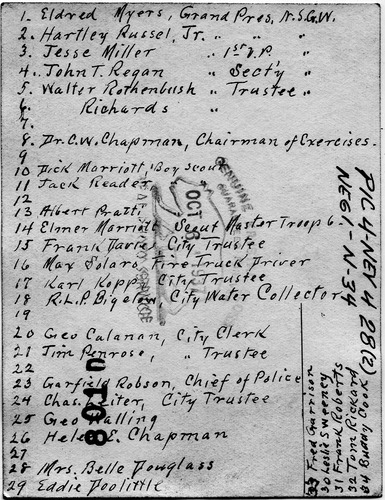 1. Eldred Myers, Grand Pres. N.S.G.W.
2. Hartley Russel, Jr. " " "
3. Jesse Miller " 1st V.P. "
4. John T. Regan " Sect'y "
5. Walter Rothenbush " Trustee "
6. Richards "
7.
8. Dr. C.W. Chapman, Chairman of Exercises.
9
10 Dick Marriott, Boy Scout
11 Jack Reader
12
13 Albert Pratti
14 Elmer Marriott, Scout Master Troop 6.
15 Frank Davies City Trustee
16 Max Solaro, Fire Truck Driver
17 Karl Kopp, City Trustee
18 R.L.P. Bigelow, City Water Collector
19
20 Geo Calanan, City Clerk
21 Jim Penrose, " Trustee
22
23 Garfield Robson, Chief of Police
24 Chas. Leiter, City Trustee
25 Geo Halling
26 Helen L. Chapman
27
28 Mrs. Belle Douglass
29 Eddie Doolittle
Fred Garrison
30 Leslie Sweeney
31 Frank Roberts
32 Tom Rickard
Buddy Cook
PIC 4-NEY 4 28(2)
NEG 1-N-34
GENUINE
OCT